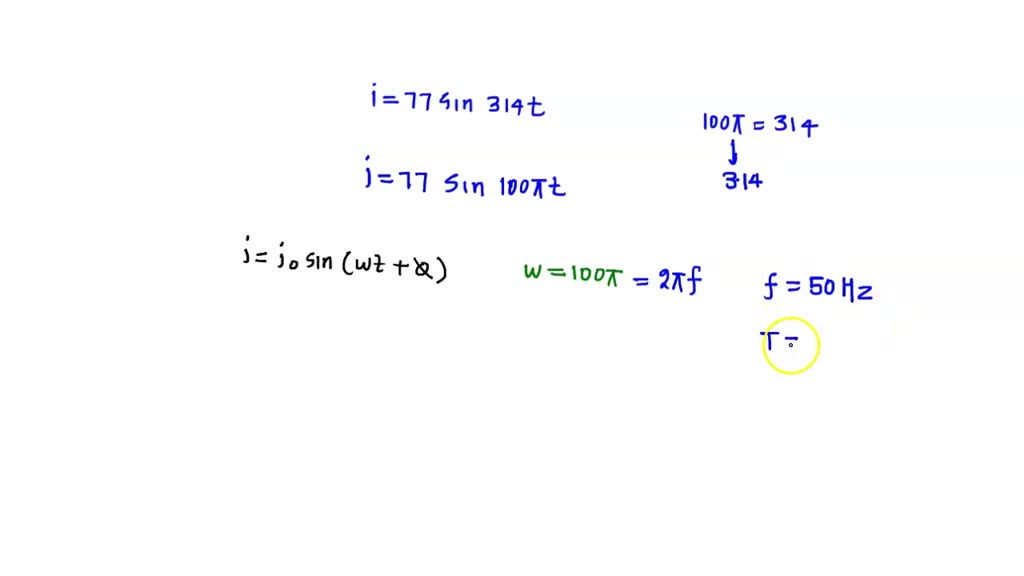 i = 77 sin 314t
100π = 314
3.14
i = 77 sin 100πt
i = i₀ sin (wt + Q)
w = 100π = 2πf
f = 50 Hz
T =